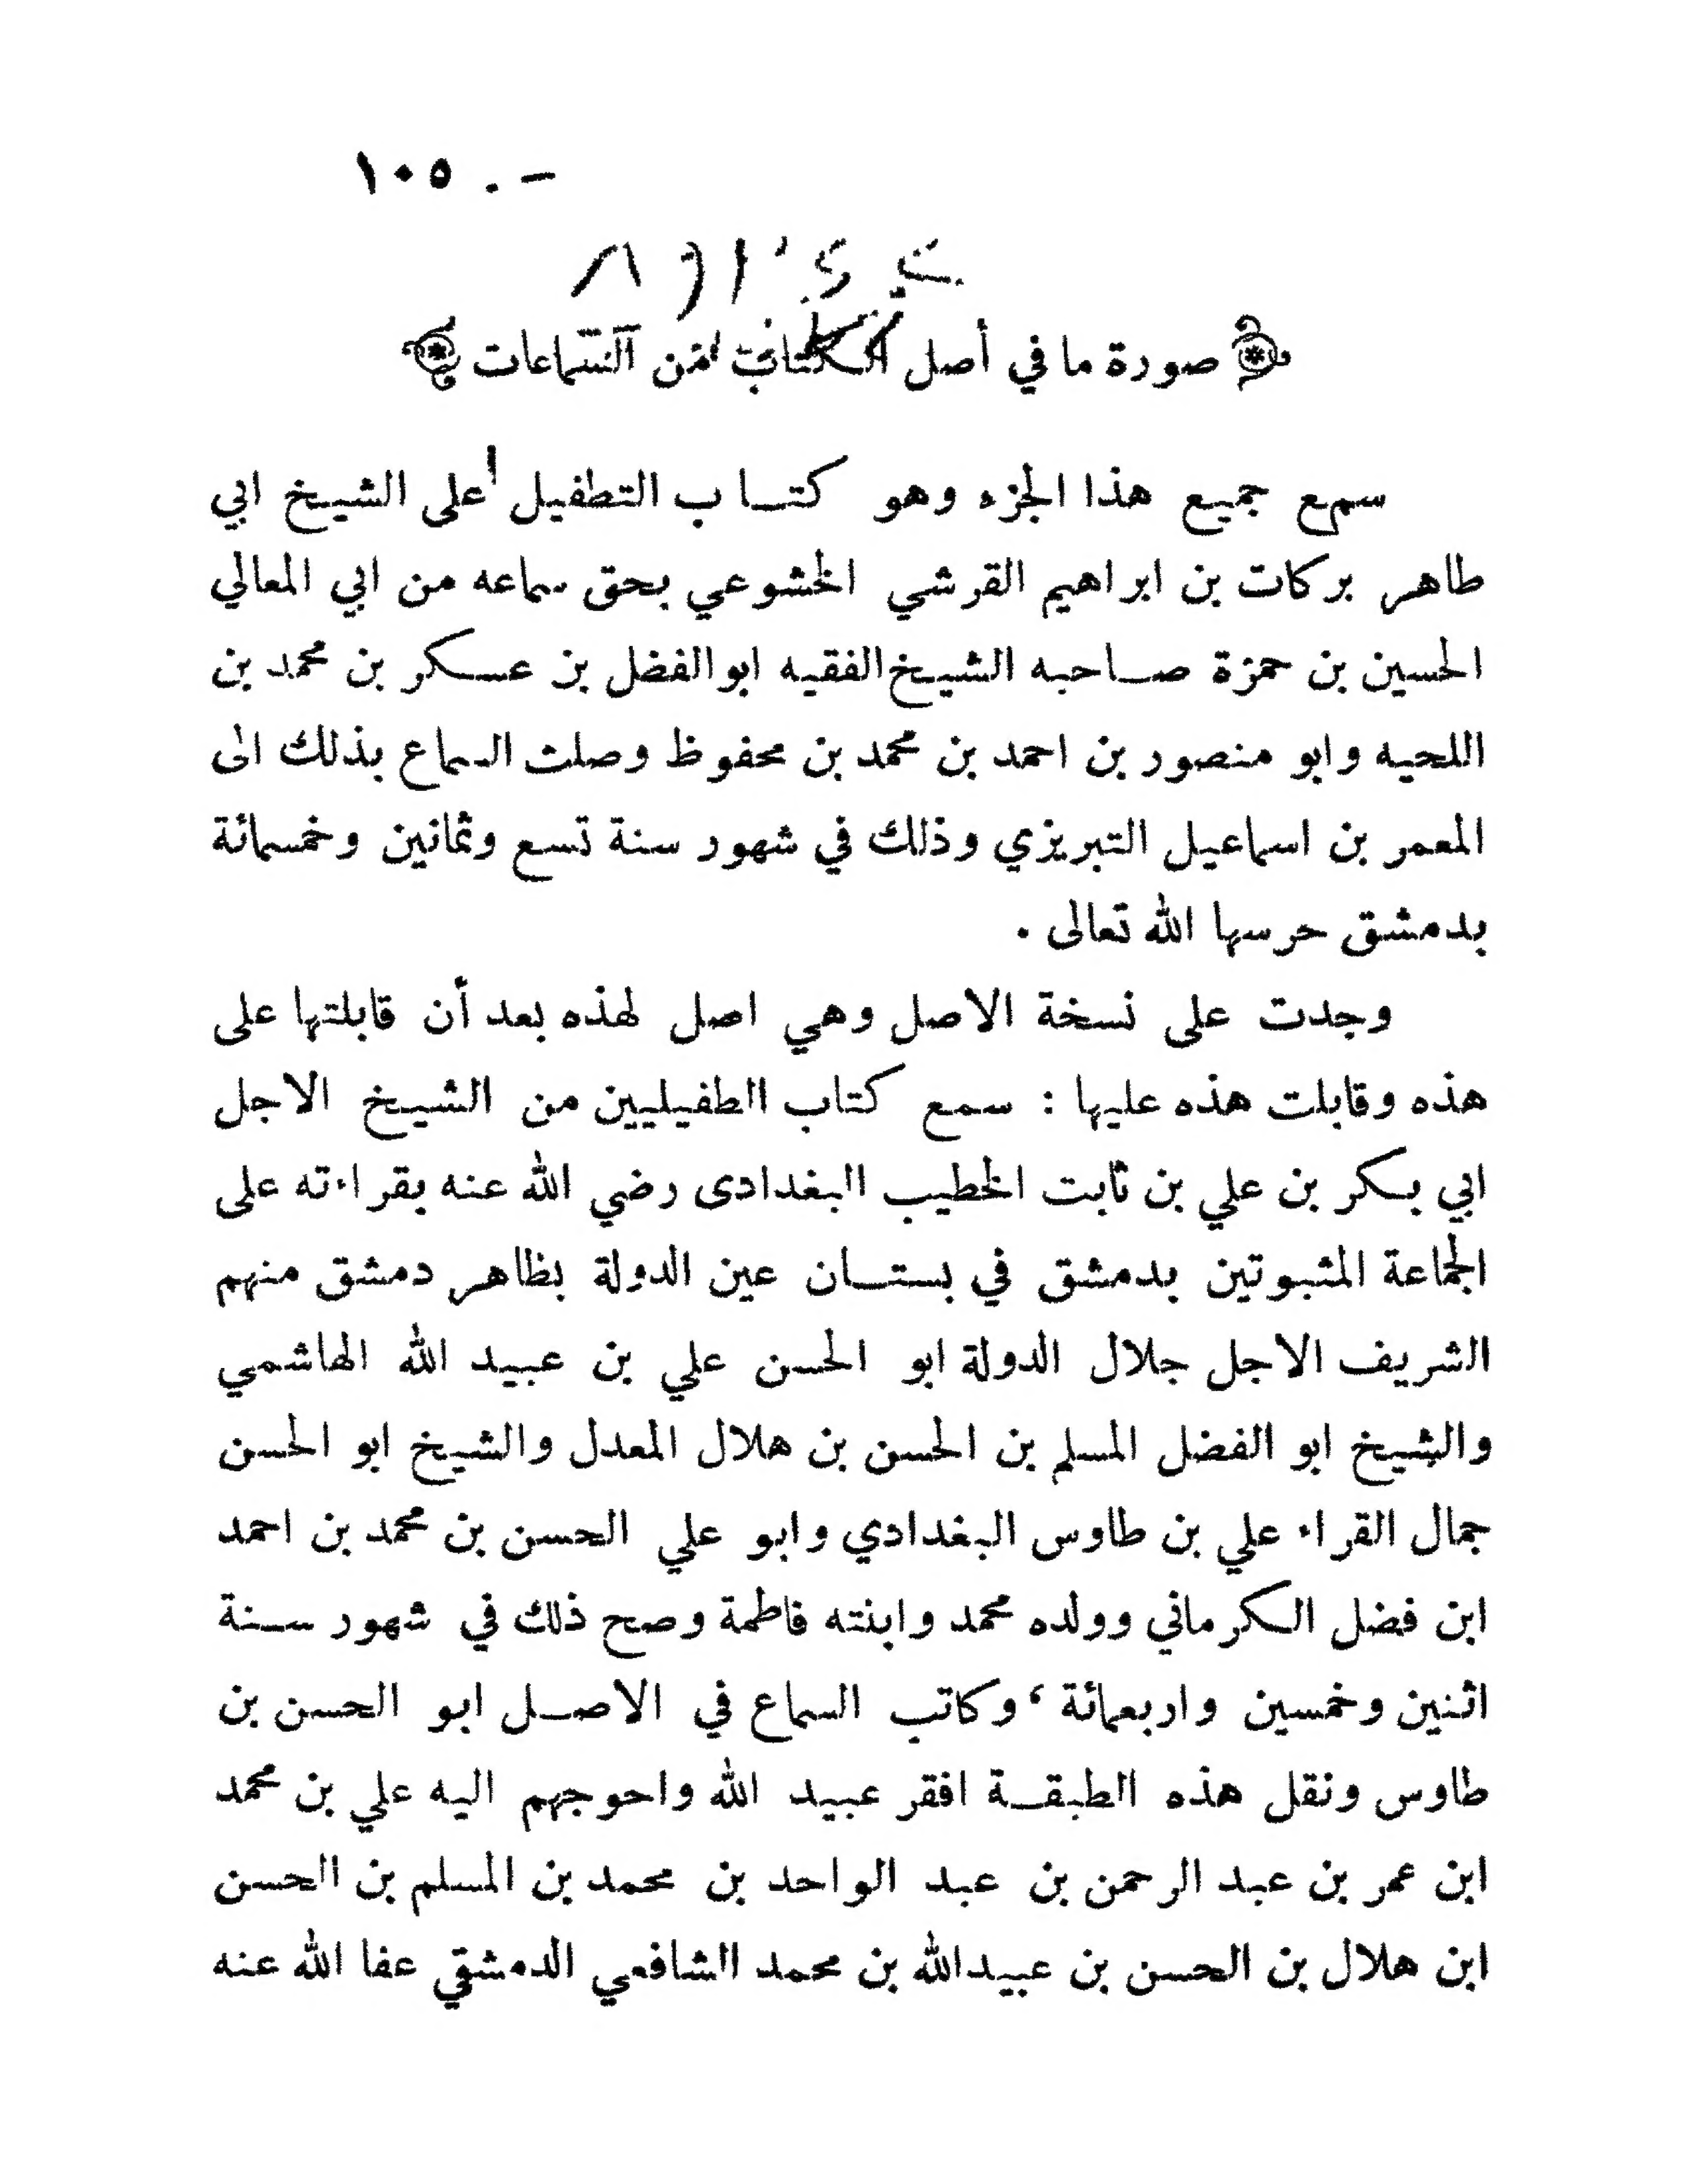 ١٠٥ . –
صورة ما في أصل الكتاب من السماعات
سمع جميع هذا الجزء وهو كتاب التطفيل على الشيخ ابي
طاهر بركات بن ابراهيم القرشي الخشوعي بحق سماعه من ابي المعالي
الحسين بن حمزة صاحبه الشيخ الفقيه ابو الفضل بن عسكر بن محمد بن
اللحيه وابو منصور بن احمد بن محمد بن محفوظ وصلت السماع بذلك الى
المعمر بن اسماعيل التبريزي وذلك في شهور سنة تسع وثمانين وخمسمائة
بدمشق حرسها الله تعالى .
وجدت على نسخة الاصل وهي اصل لهذه بعد أن قابلتها على
هذه وقابلت هذه عليها : سمع كتاب الطفيليين من الشيخ الاجل
ابي بكر بن علي بن ثابت الخطيب البغدادى رضي الله عنه بقراءته على
الجماعة المثبوتين بدمشق في بستان عين الدولة بظاهر دمشق منهم
الشريف الاجل جلال الدولة ابو الحسن علي بن عبيد الله الهاشمي
والشيخ ابو الفضل المسلم بن الحسن بن هلال المعدل والشيخ ابو الحسن
جمال القراء علي بن طاوس البغدادي وابو علي الحسن بن محمد بن احمد
ابن فضل الكرماني وولده محمد وابنته فاطمة وصح ذلك في شهور سنة
اثنين وخمسين واربعمائة ، وكاتب السماع في الاصل ابو الحسن بن
طاوس ونقل هذه الطبقة افقر عبيد الله واحوجهم اليه علي بن محمد
ابن عمر بن عبد الرحمن بن عبد الواحد بن محمد بن المسلم بن الحسن
ابن هلال بن الحسن بن عبيدالله بن محمد الشافعي الدمشقي عفا الله عنه